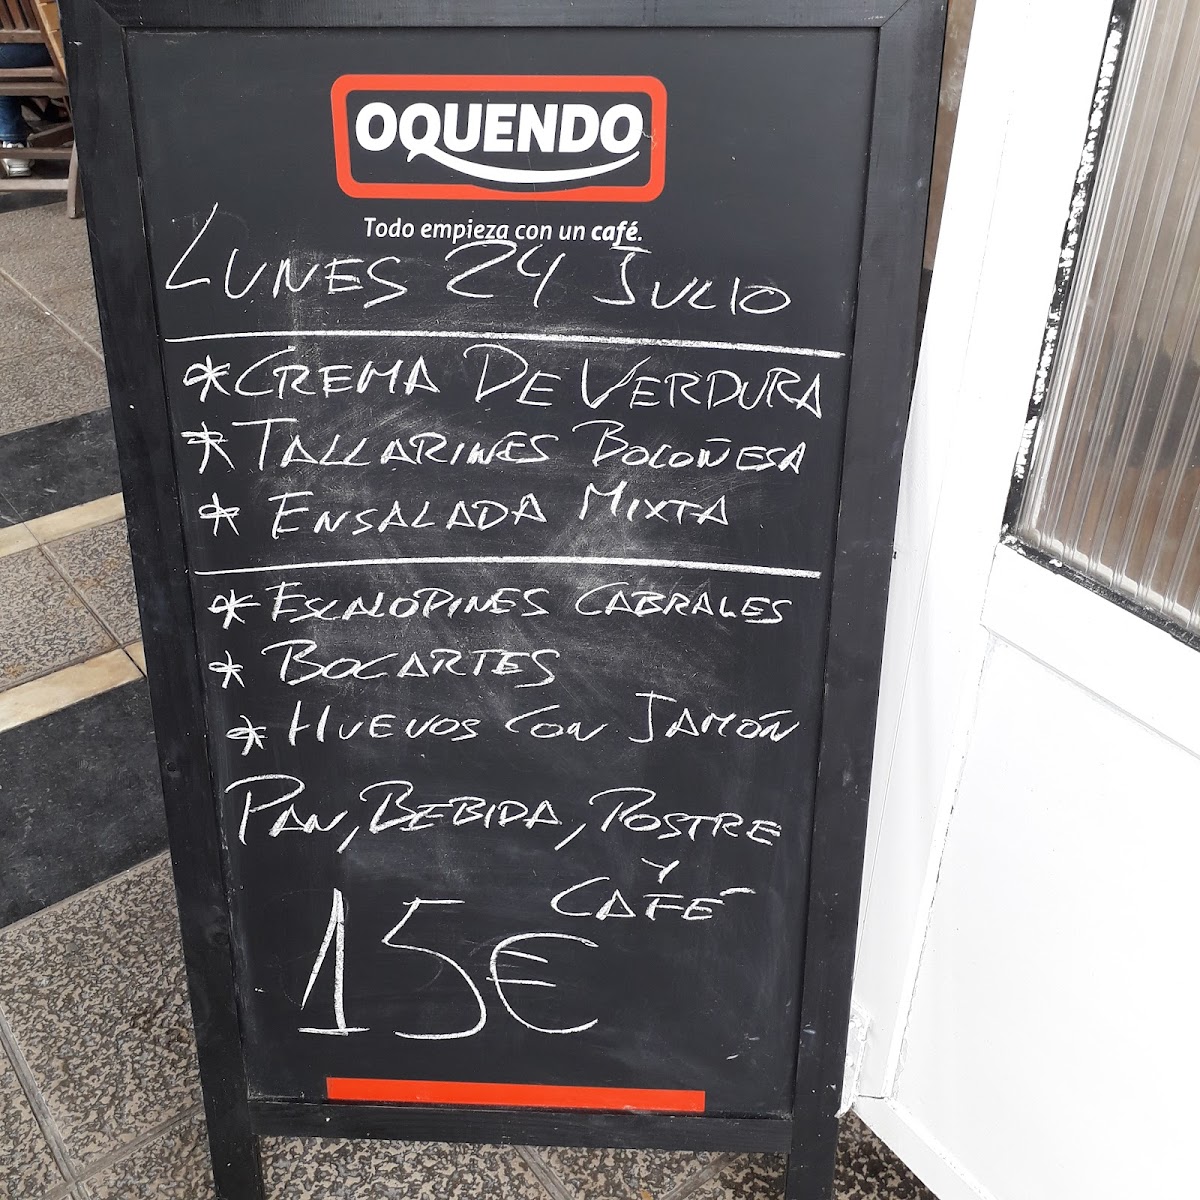 OQUENDO
Todo empieza con un café.
LUNES 24 JULIO
*CREMA DE VERDURA
*TALLARINES BOLOÑESA
* ENSALADA MIXTA
*ESCALOPINES CABRALES
* BOCARTES
* HUEVOS CON JAMÓN
PAN, BEBIDA, POSTRE
Y
CAFÉ
15€